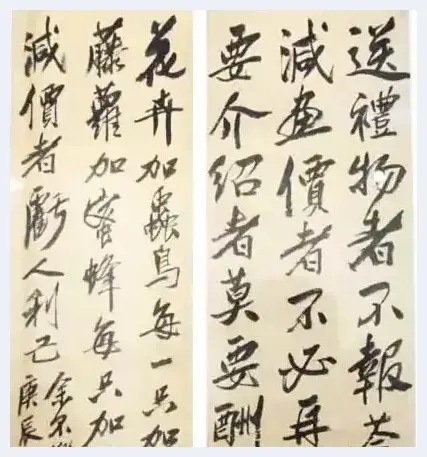 送禮物者不報荅
減畫價者不必再
要介紹者莫要酬
花卉加蟲鳥每一只加
藤蘿加蜜蜂每只加
減價者虧人利己余不
庚辰